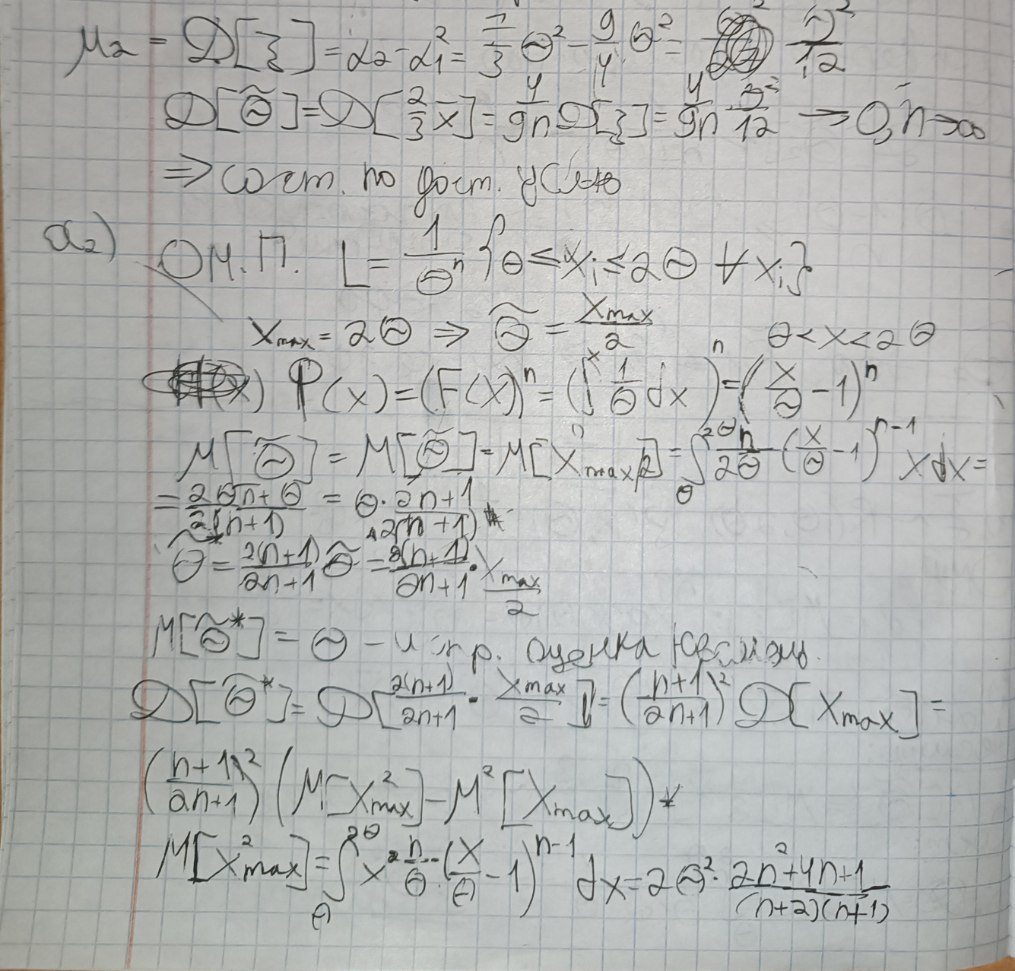 μ₂ = D[ξ] = α₂ - α₁² = 7/3 Θ² - 9/4 Θ² = Θ²/12
D[Θ̃] = D[2/3 x̄] = 4/9n D[ξ] = 4/9n · Θ²/12 → 0, n→∞
⇒ сост. по дост. усл-ю
a₂) О.М.П. L = 1/Θⁿ {Θ ≤ xᵢ ≤ 2Θ ∀ xᵢ}
x_max = 2Θ ⇒ Θ̃ = x_max/2 Θ < x < 2Θ
φ(x) = (F(x))ⁿ = (∫ˣ 1/Θ dx)ⁿ = (x/Θ - 1)ⁿ
M[Θ̃] = M[Θ̃] = M[x_max/2] = ∫_Θ^2Θ n/2Θ (x/Θ - 1)ⁿ⁻¹ x dx =
= 2Θn+Θ/2(n+1) = Θ · 2n+1/2(n+1)
Θ̃* = 2(n+1)/2n+1 Θ̃ = 2(n+1)/2n+1 · x_max/2
M[Θ̃*] = Θ - испр. оценка
D[Θ̃*] = D[2(n+1)/2n+1 · x_max/2] = (n+1/2n+1)² D[x_max] =
(n+1/2n+1)² (M[x²_max] - M²[x_max])
M[x²_max] = ∫_Θ^2Θ x² n/Θ (x/Θ - 1)ⁿ⁻¹ dx = 2Θ² · 2n²+4n+1/(n+2)(n+1)